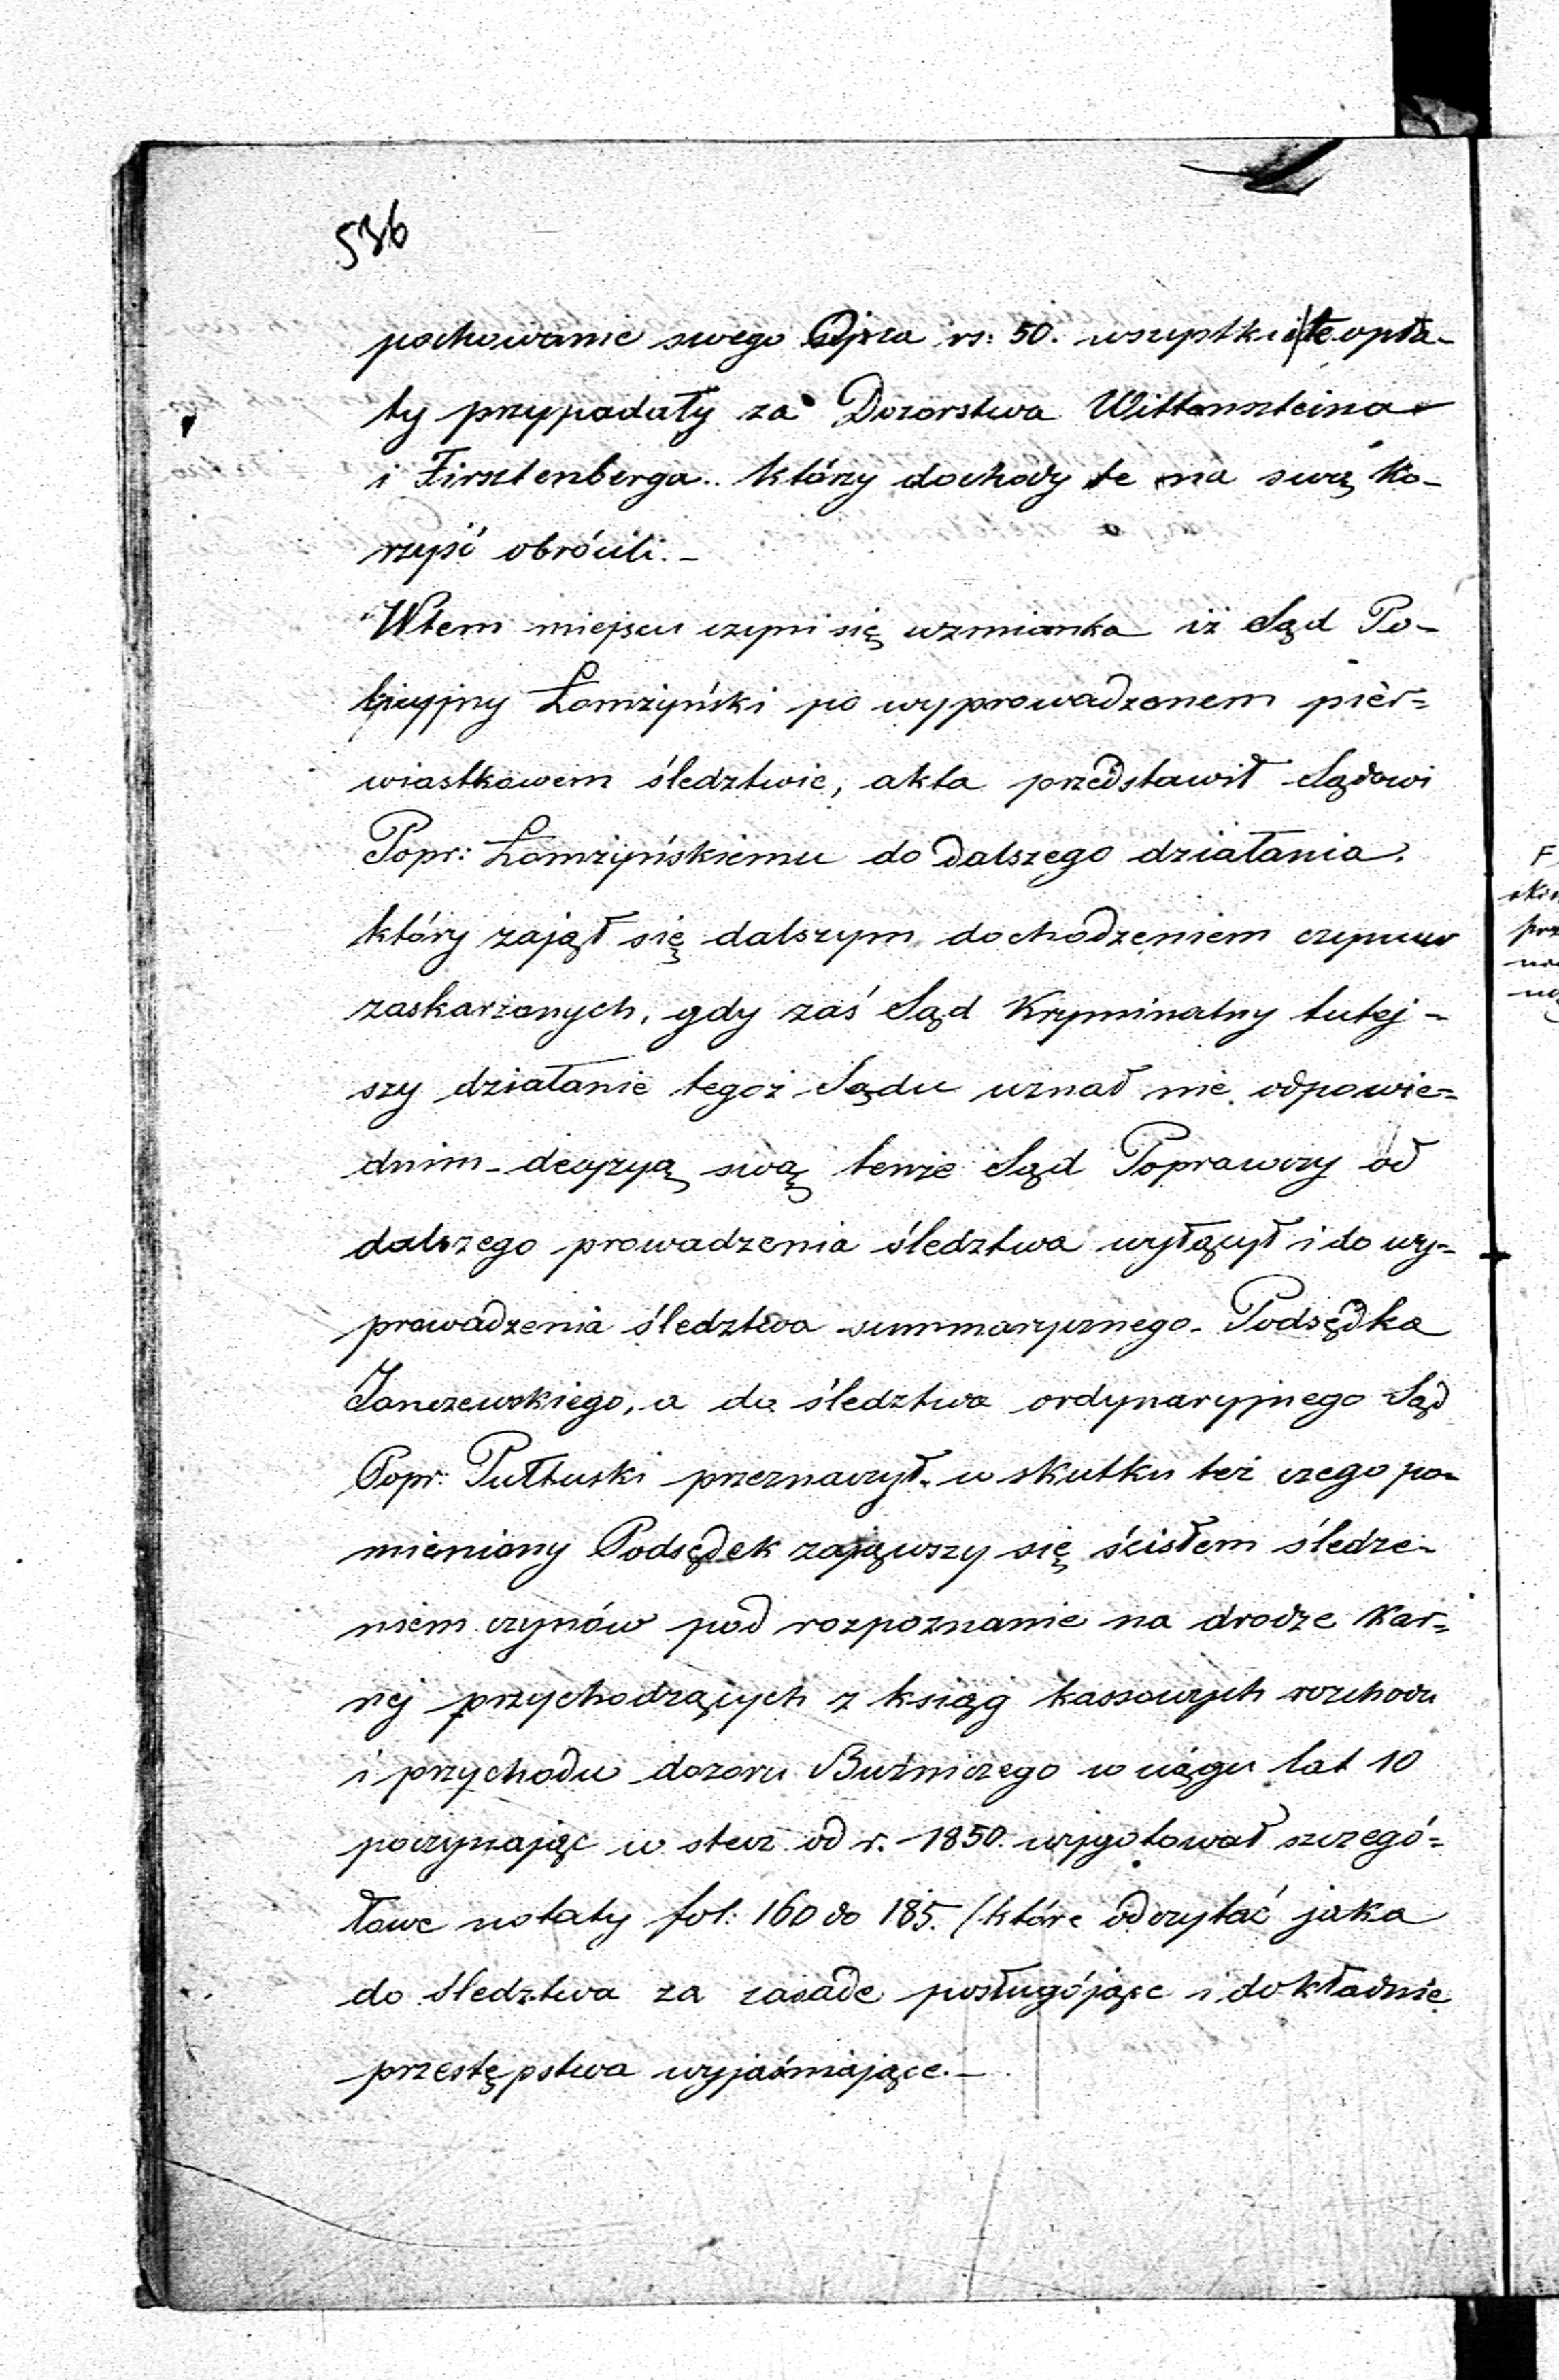 536
pochowanie swego Ojca rs: 50. wszystkie te opła-
ty przypadały za Dozorstwa Wittenszteina
i Firsztenberga.. którzy dochody te na swą ko-
rzyść obrócili.-
W tem miejscu czyni się wzmianka iż Sąd Po-
licyjny Łomżyński po wyprowadzonem pier=
wiastkowem śledztwie, akta przedstawił Sądowi
Popr: Łomżyńskiemu do dalszego działania.
który zajął się dalszym dochodzeniem czynuw
zaskarżonych, gdy zaś Sąd Kryminalny tutej-
szy działanie tegoż Sądu uznał nie odpowie=
dnim - decyzyą swą tenże Sąd Poprawczy od
dalszego prowadzenia śledztwa wyłączył i do wy-
prowadzenia śledztwa summarycznego - Podsędka
Janczewskiego, a do śledztwa ordynaryjnego Sąd
Popr: Pułtuski przeznaczył. w skutku też czego po-
mieniony Podsędek zająwszy się ścisłem śledze-
niem czynów pod rozpoznanie na drodze kar=
nej przychodzących z ksiąg kassowych rozchodu
i przychodu dozoru Bużniczego w ciągu lat 10
poczynając w stecz od r. 1850. wygotował szczegó=
łowe notaty fol: 160 do 185. (które odczytać jako
do śledztwa za zasade posługójące i dokładnie
przestępstwa wyjaśniające.-